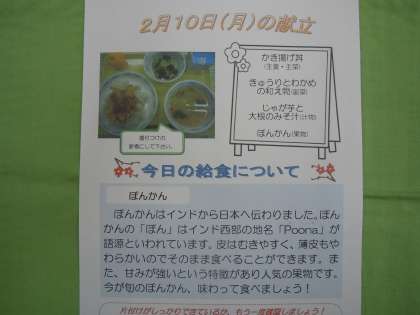 2月10日(月)の献立
かき揚げ丼
(主食・主菜)
きゅうりとわかめ
の和え物(副菜)
じゃが芋と
大根のみそ汁(汁物)
ぽんかん(果物)
盛付つけの
参考にして下さい。
今日の給食について
ぽんかん
ぽんかんはインドから日本へ伝わりました。ぽん
かんの「ぽん」はインド西部の地名「Poona」が
語源といわれています。皮はむきやすく、薄皮もや
わらかいのでそのまま食べることができます。ま
た、甘みが強いという特徴があり人気の果物です。
今が旬のぽんかん、味わって食べましょう!
片付けがしっかりできているか、もう一度確認しましょう!